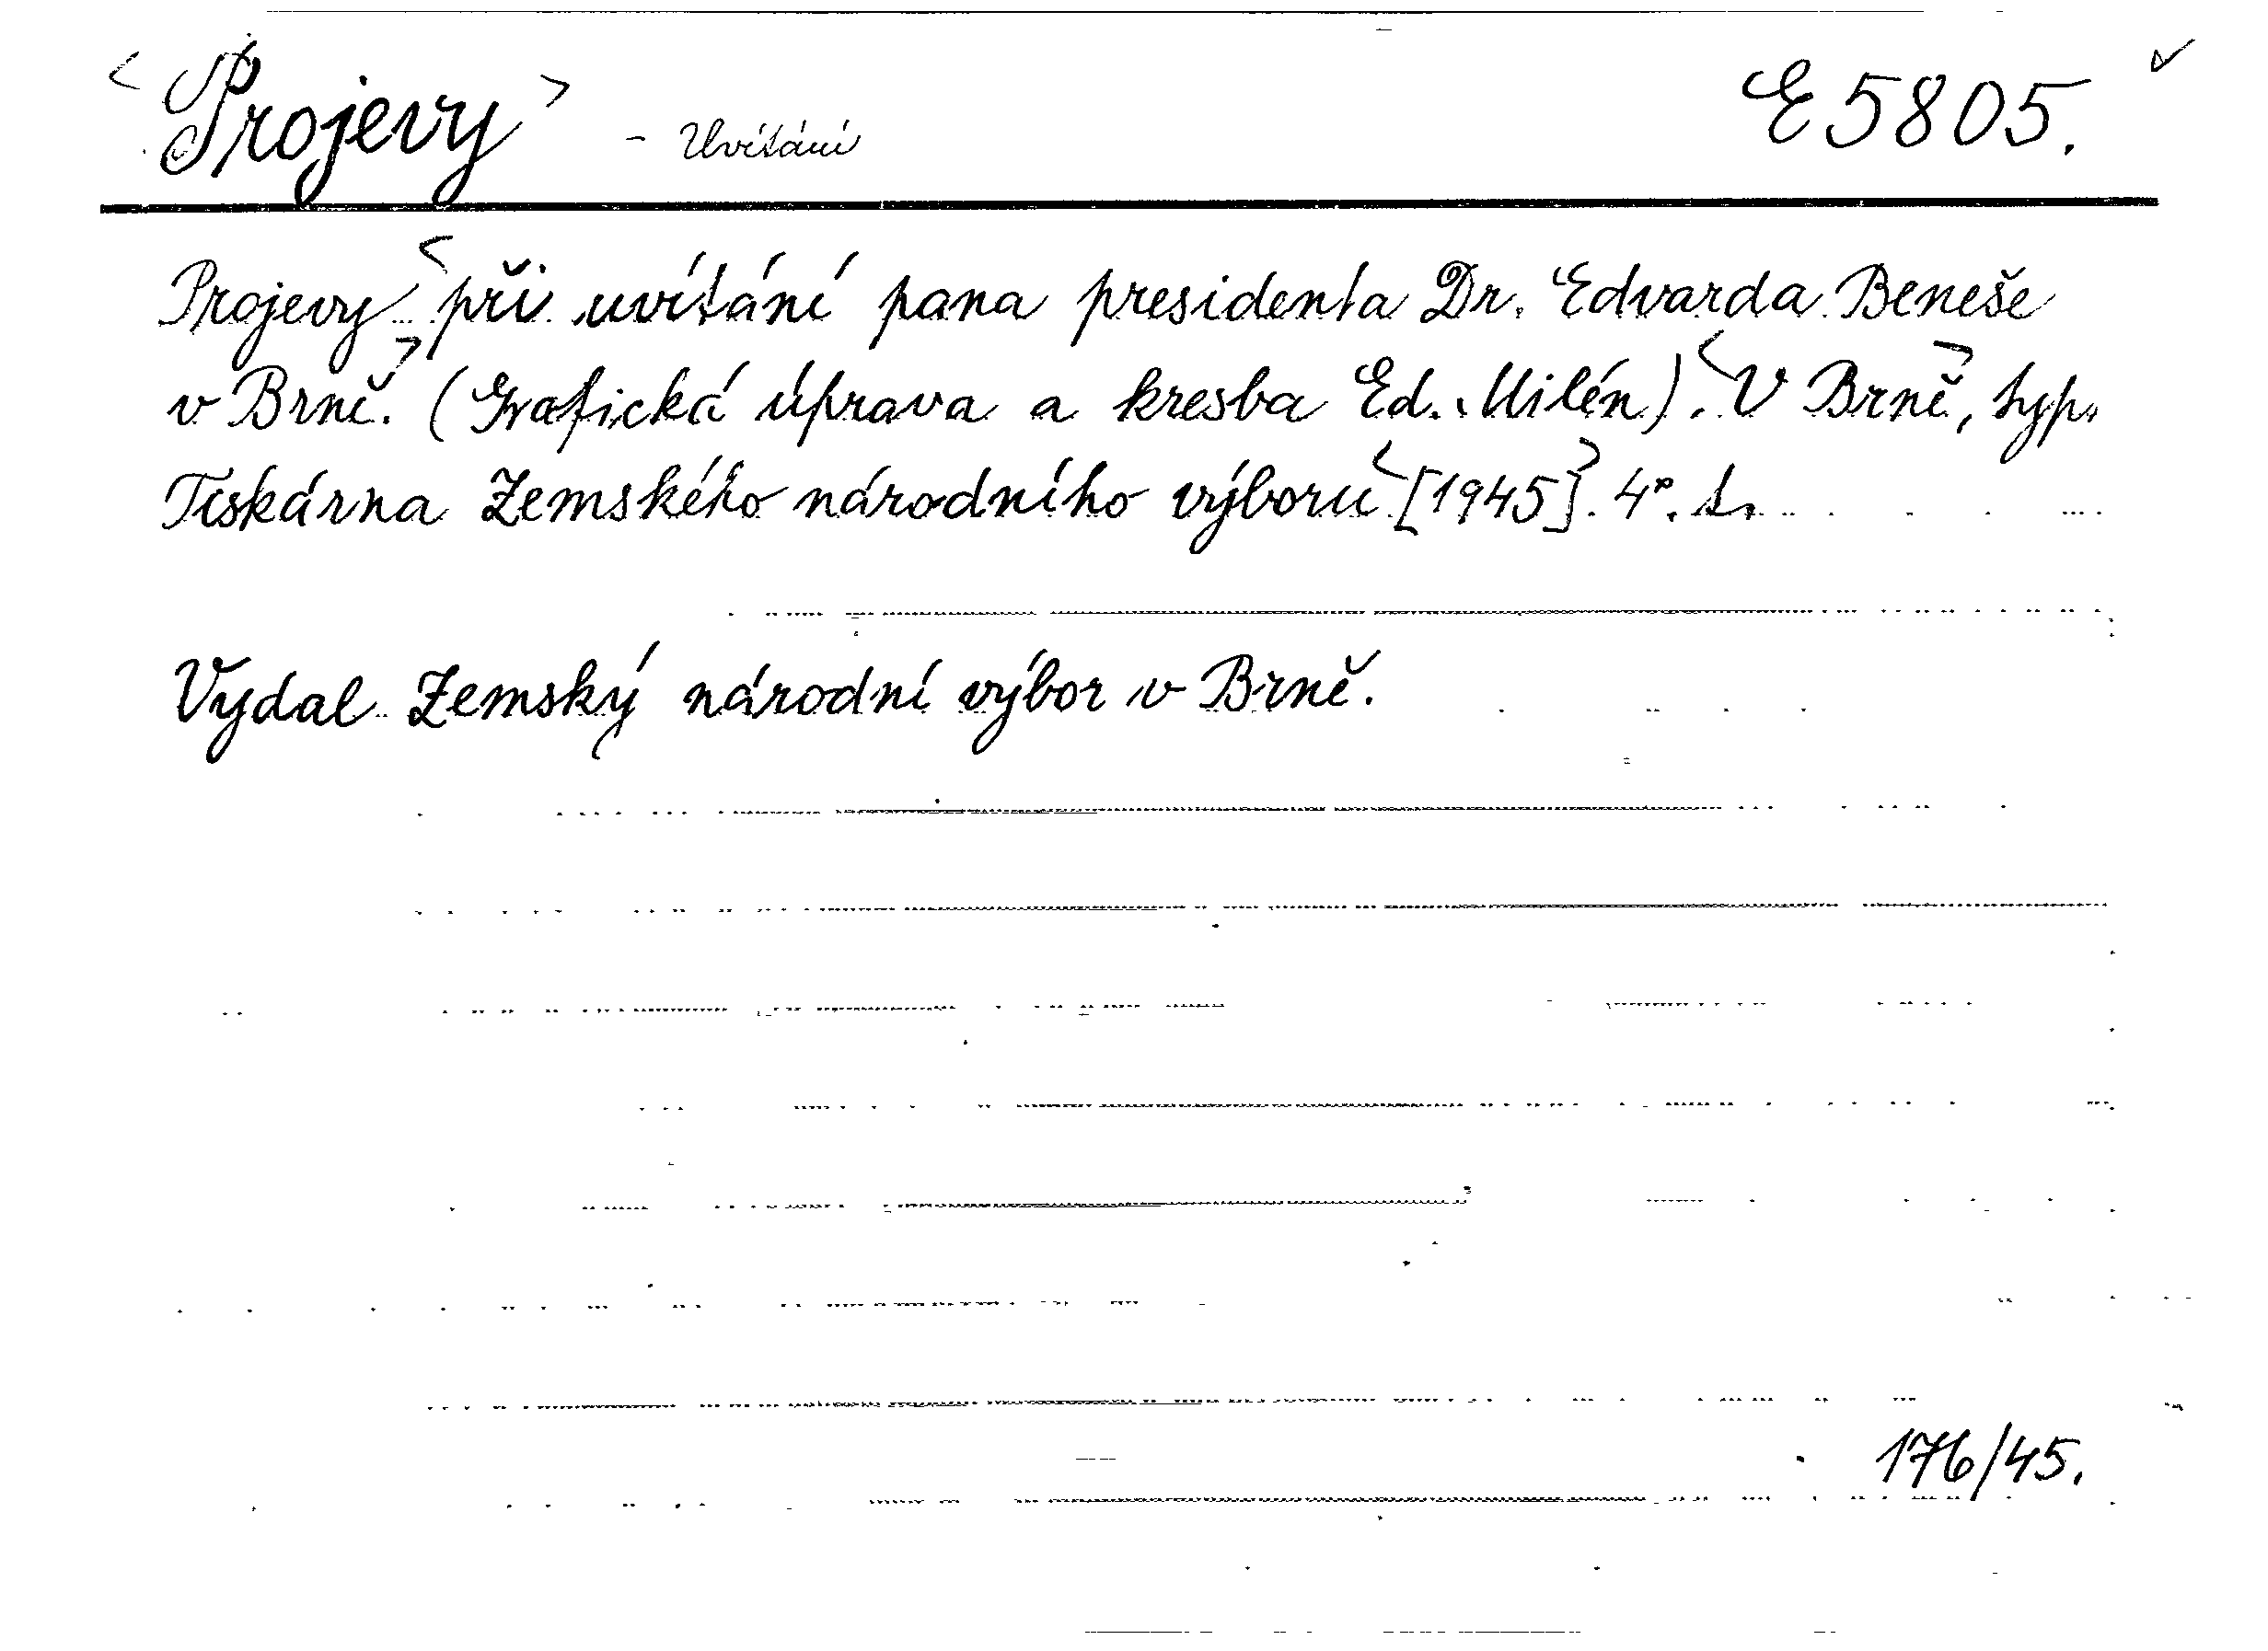 <Projevy> - Uvítání E 5805. ✓
Projevy <při uvítání pana presidenta Dr. Edvarda Beneše
v Brně.> (Grafická úprava a kresba Ed. Milén). <V Brně>, typ.
Tiskárna Zemského národního výboru <[1945]>. 4°. s.
Vydal Zemský národní výbor v Brně.
176/45.